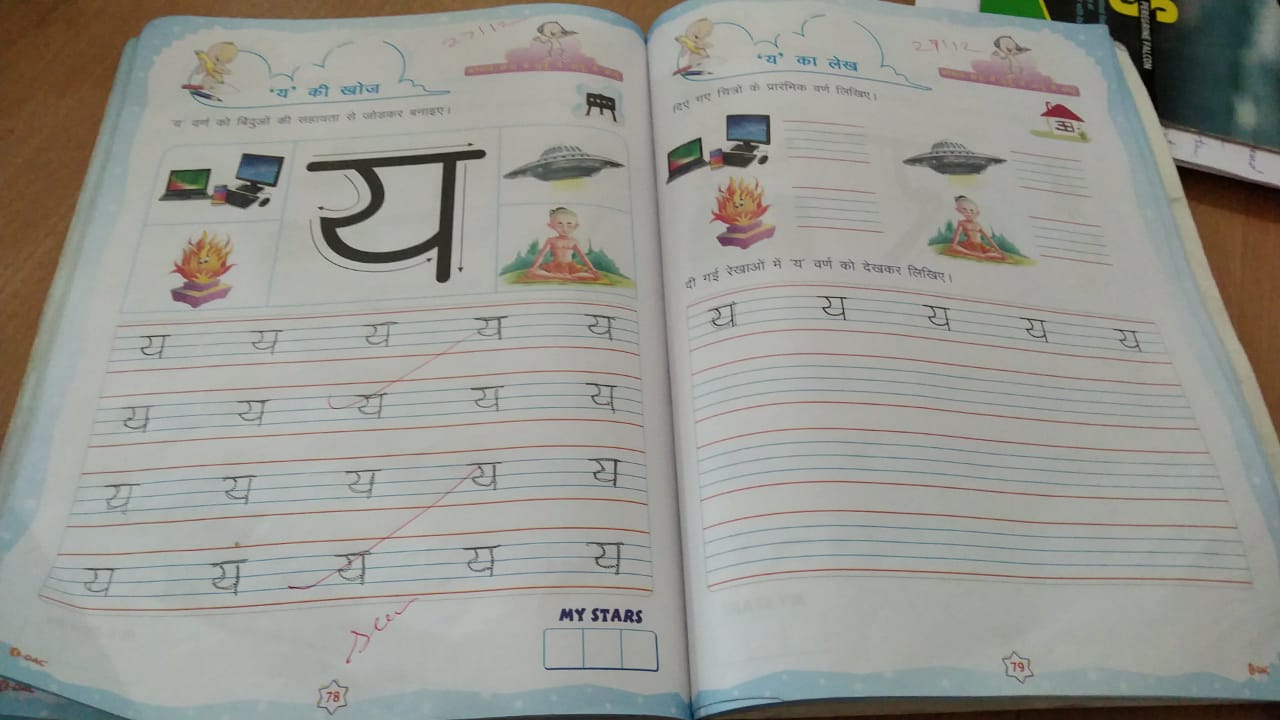 27/12
'य' की खोज
'य' वर्ण को बिंदुओं की सहायता से जोड़कर बनाइए।
य
य य य य य
य य य य य
य य य य य
य यं य य य
Seen
MY STARS
78
29/12
'य' का लेख
दिए गए चित्रों के प्रारंभिक वर्ण लिखिए।
दी गई रेखाओं में 'य' वर्ण को देखकर लिखिए।
य य य य य
79
PEREGRINE FALCON